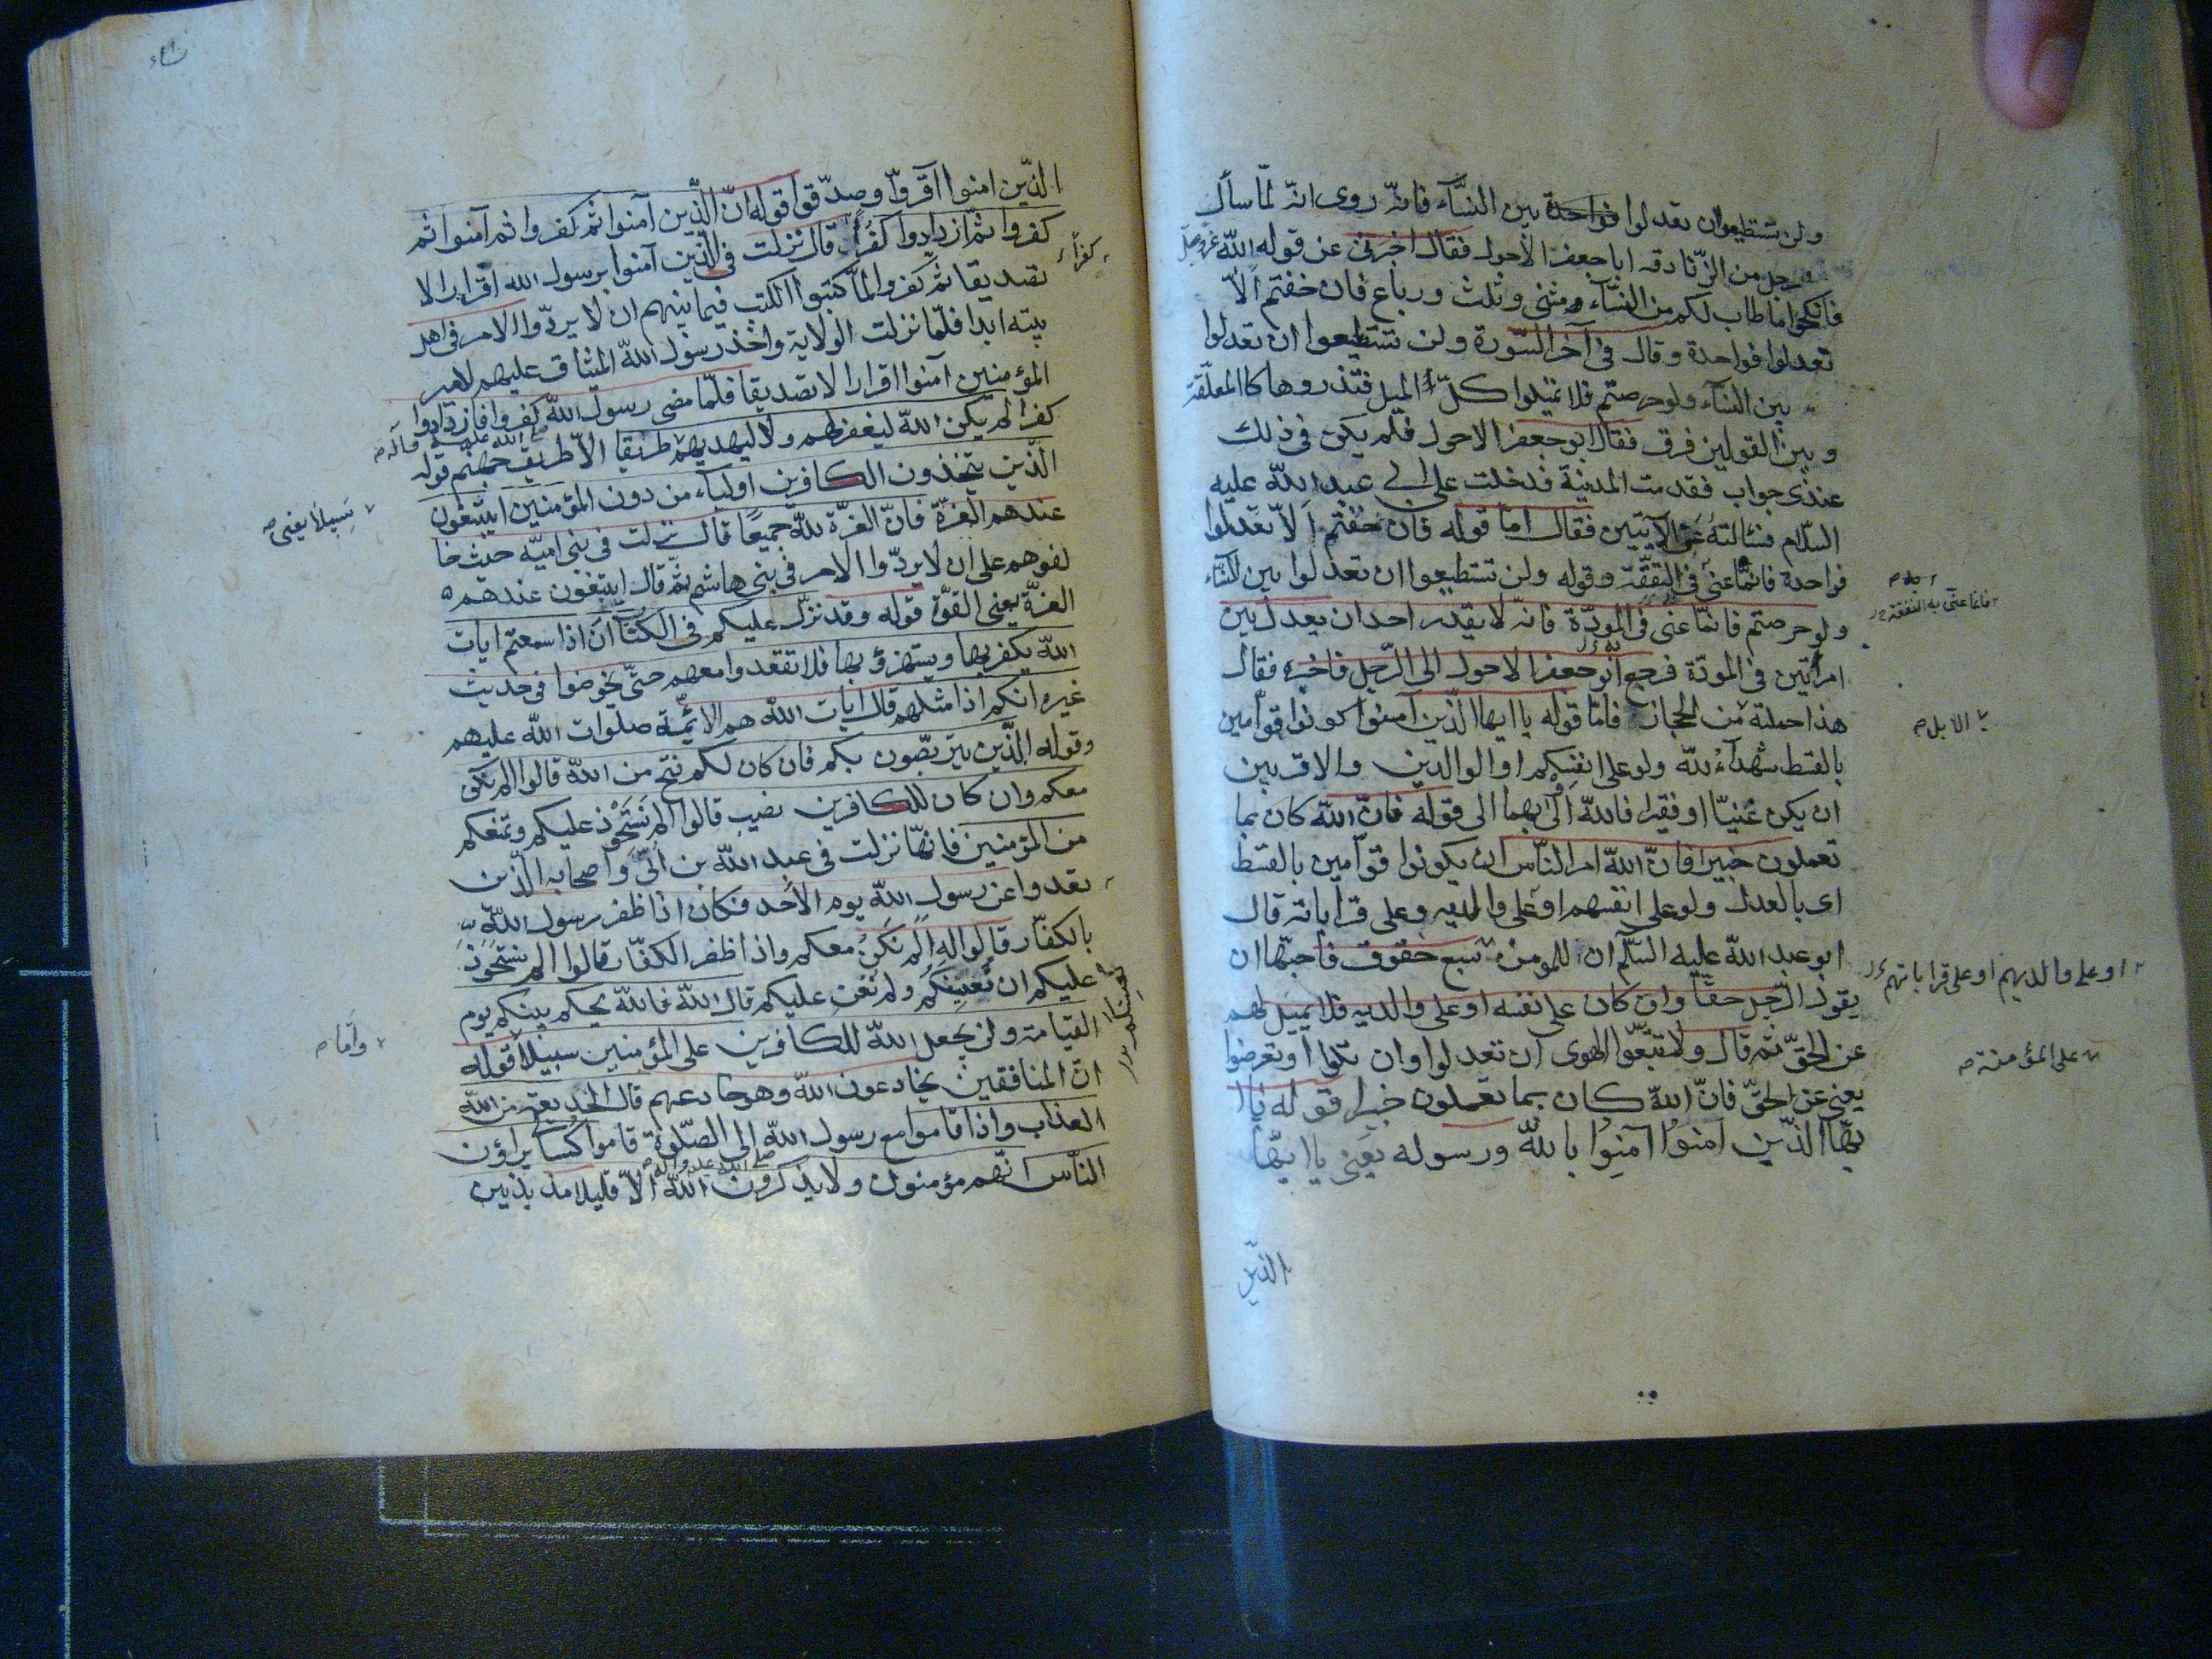 ولن تستطيعوا ان تعدلوا فواحدة بين النسآء فانّه روى انّه لمّا سأل
رجل من الزّنادقه اباجعفر الاحول فقال اخبرنى عن قوله الله عزّ وجلّ
فانكحوا ما طاب لكم من النسآء مثنى وثلث ورباع فان خفتم الّا
تعدلوا فواحدة وقال فى آخر السّورة ولن تستطيعوا ان تعدلوا
بين النسآء ولو حرصتم فلا تميلوا كلّ الميل فتذروها كالمعلّقة
وبين القولين فرق فقال ابوجعفر الاحول فلم يكن فى ذلك
عندى جواب فقدمت المدينة فدخلت على ابى عبد الله عليه
السّلام فسالته عن الآيتين فقال امّا قوله فان خفتم الّا تعدلوا
فواحدة فانّما عنى فى النفقة وقوله ولن تستطيعوا ان تعدلوا بين النسآء
ولو حرصتم فانّما عنى فى المودّة فانّه لا يقدر احد ان يعدل بين
امرأتين فى المودّة فرجع ابوجعفر الاحول الى الرّجل فاخبره فقال
هذا حملته من الحجاز فامّا قوله يا ايها الذّين آمنوا كونوا قوّامين
بالقسط شهدآء لله ولو على انفسكم او الوالدين والاقربين
ان يكن غنيّا او فقيرا فالله اولى بهما الى قوله فانّ الله كان بما
تعملون خبيرا فانّ الله امر النّاس ان يكونوا قوّامين بالقسط
اى بالعدل ولو على انفسهم او على والديه وعلى قراباته قال
ابو عبد الله عليه السّلم ان للمؤمن سبع حقوق فاحبّها ان
يقول الرّجل حقّا وان كان على نفسه او على والديه فلا يميل لهم
عن الحقّ ثم قال ولا تتبعّوا الهوى ان تعدلوا وان تلوا او تعرضوا
يعنى عن الحقّ فانّ الله كان بما تعملون خبيرا قوله يا ا
يهّا الذّين امنوا آمنوا بالله ورسوله يعنى يا ايهّا
الذّين
فانما عنى به النفقة
الابل ص
او على والديهم او على قراباتهم
على المؤمنة ص
نساء
الذّين امنوا اقروّا وصدّقوا قوله انّ الذّين آمنوا ثم كفروا ثم آمنوا ثم
كفروا ثم ازدادوا كفرًا قال نزلت فى الذّين آمنوا برسول الله اقرارا لا
تصديقا ثم كفروا لمّا كتبوا الكتب فيما بينهم ان لا يردّوا الامر فى اهل
بيته ابدا فلمّا نزلت الولاية واخذ رسول الله الميثاق عليهم لامير
المؤمنين آمنوا اقرارا لا تصديقا فلمّا مضى رسول الله كفروا فازدادوا
كفرا لم يكن الله ليغفر لهم ولا ليهديهم طريقا الّا طريق جهنّم قوله
الذّين يتخذون الكافرين اوليآء من دون المؤمنين ايبتغون
عندهم العزّة فانّ العزّة لله جميعًا قال نزلت فى بنى اميّه حيث خا
لفوهم على ان لا يردّوا الامر فى بنى هاشم ثمّ قال ايبتغون عندهم
العزّة يعنى القوّة قوله وقد نزّل عليكم فى الكتاب ان اذا سمعتم ايات
الله يكفر بها ويستهزؤ بها فلا تقعدوا معهم حتّى يخوضوا فى حديث
غيره انكم اذا مثلهم قال ايات الله هم الائمّة صلوات الله عليهم
وقوله الذّين يتربّصون بكم فان كان لكم فتح من الله قالوا الم نكن
معكم وان كان للكافرين نصيب قالوا الم نستحوذ عليكم ونمنعكم
من المؤمنين فانهّا نزلت فى عبد الله بن ابىّ واصحابه الذّين
قعدوا عن رسول الله يوم الاحد فكان اذا ظفر رسول الله
بالكفّار قالوا له الم نكن معكم واذا ظفر الكفّار قالوا الم نستحوذ
عليكم ان نعينكم ولم نعن عليكم قال الله فالله يحكم بينكم يوم
القيامة ولن يجعل الله للكافرين على المؤمنين سبيلا قوله
انّ المنافقين يخادعون الله وهو خادعهم قال الخديعة من الله
العذاب واذا قاموا مع رسول الله الى الصّلوة قاموا كسالى يراؤن
النّاس انّهم مؤمنون ولا يذكرون الله الّا قليلا مذبذبين
كفراً
سبيلا يعنى ص
وامّا ص